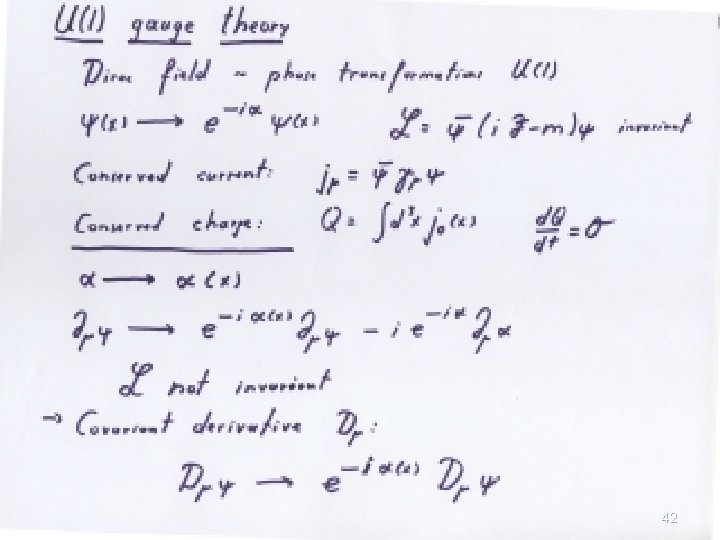 U(1) gauge theory
Dirac field ~ phase transformations U(1)
ψ(x) ⟶ e^{-iα} ψ(x)   ℒ = ψ̄ (i ∂̸ - m) ψ invariant
Conserved current: j_μ = ψ̄ γ_μ ψ
Conserved charge: Q = ∫d³x j₀(x)   dQ/dt = 0
α ⟶ α(x)
∂_μ ψ ⟶ e^{-iα(x)} ∂_μ ψ - i e^{-iα} ∂_μ α
ℒ not invariant
→ Covariant derivative D_μ:
D_μ ψ ⟶ e^{-iα(x)} D_μ ψ
42